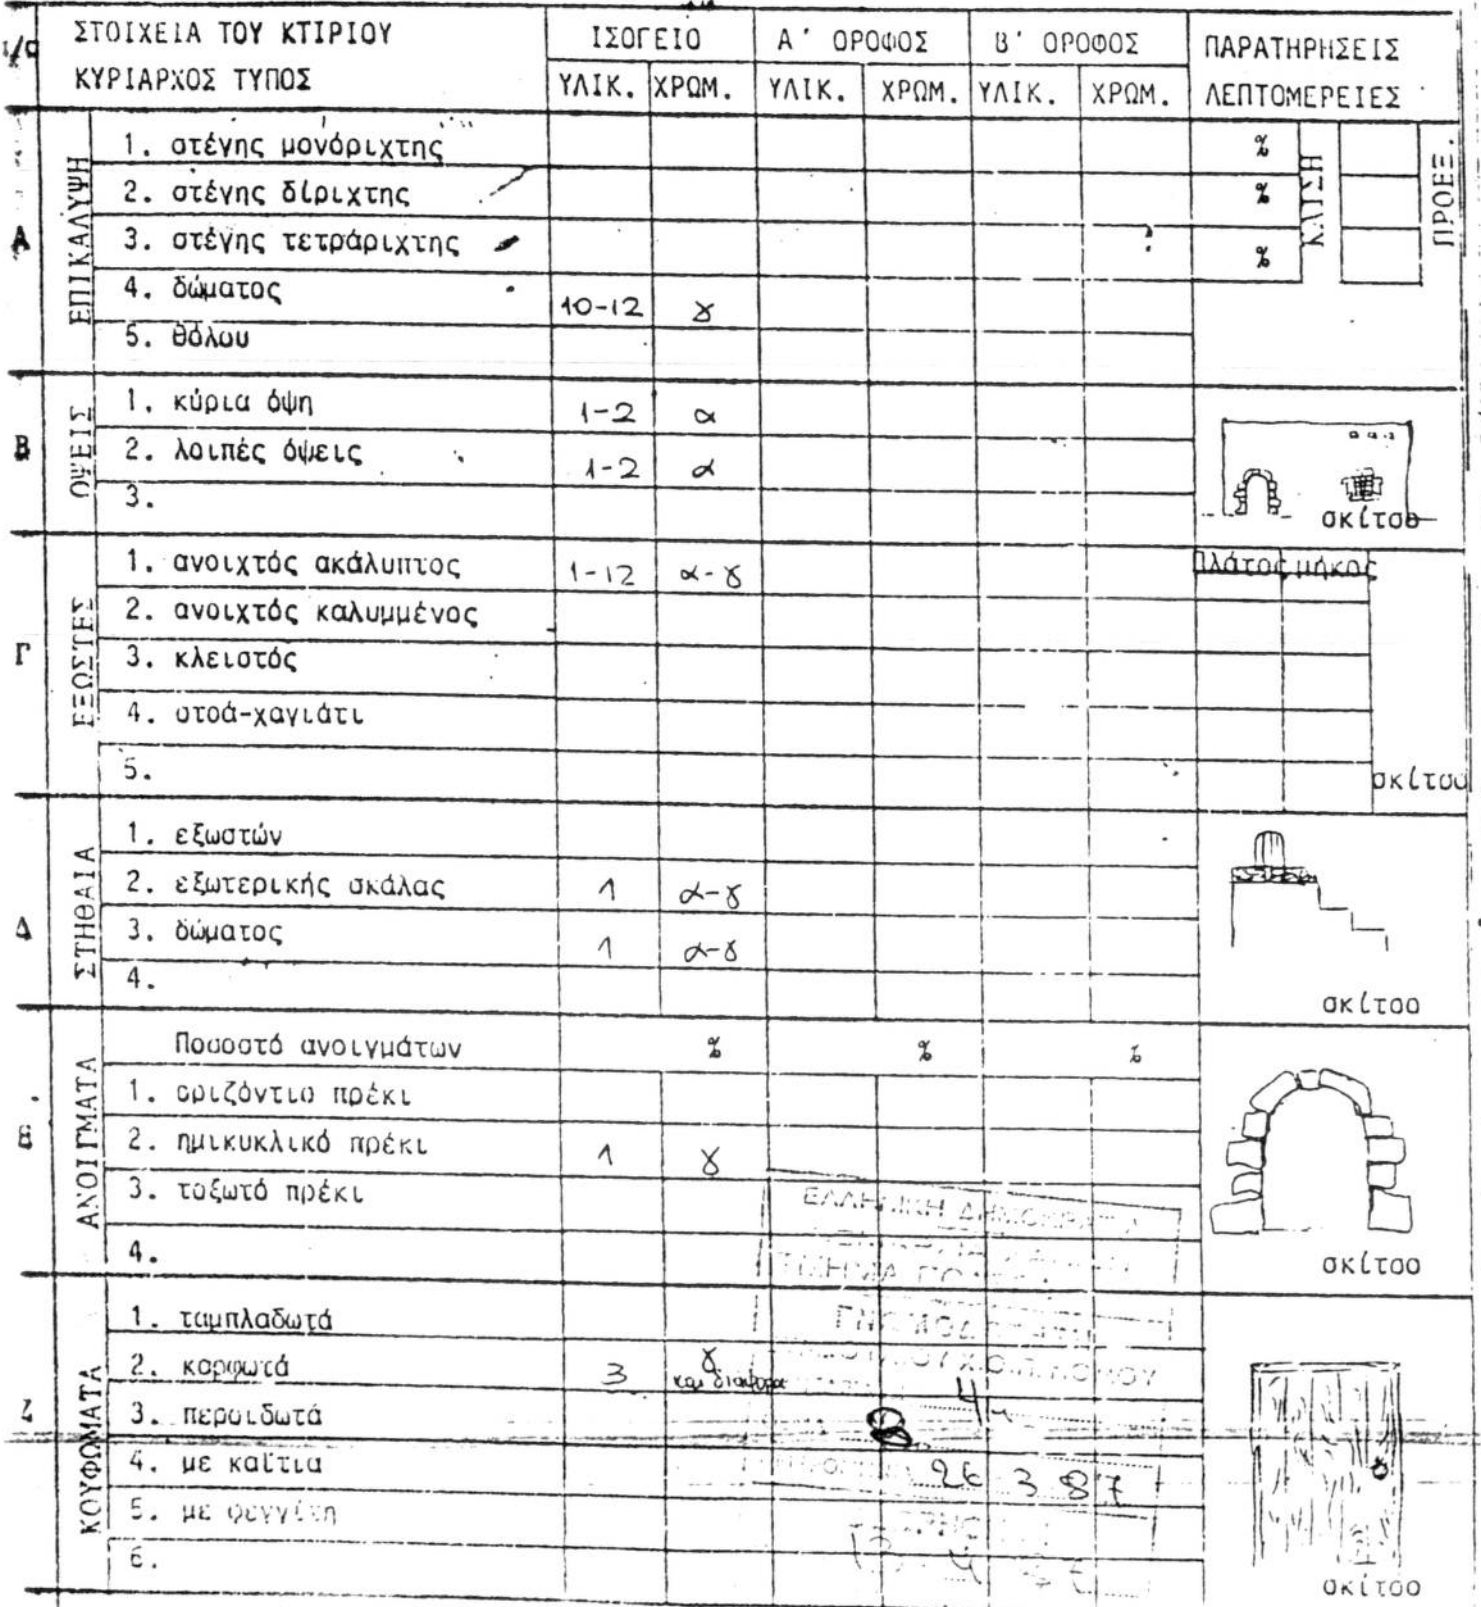 ΣΤΟΙΧΕΙΑ ΤΟΥ ΚΤΙΡΙΟΥ
ΚΥΡΙΑΡΧΟΣ ΤΥΠΟΣ
ΙΣΟΓΕΙΟ Α' ΟΡΟΦΟΣ Β' ΟΡΟΦΟΣ
ΥΛΙΚ. ΧΡΩΜ. ΥΛΙΚ. ΧΡΩΜ. ΥΛΙΚ. ΧΡΩΜ.
ΠΑΡΑΤΗΡΗΣΕΙΣ
ΛΕΠΤΟΜΕΡΕΙΕΣ
Α ΕΠΙΚΑΛΥΨΗ
1. στέγης μονόριχτης %
2. στέγης δίριχτης %
3. στέγης τετράριχτης %
ΚΛΙΣΗ
ΠΡΟΕΞ.
4. δώματος 10-12 γ
5. θόλου
Β ΟΨΕΙΣ
1. κύρια όψη 1-2 α
2. λοιπές όψεις 1-2 α
3.
σκίτσο
Γ ΕΞΩΣΤΕΣ
1. ανοιχτός ακάλυπτος 1-12 α-γ πλάτος μήκος
2. ανοιχτός καλυμμένος
3. κλειστός
4. στοά-χαγιάτι
5.
σκίτσο
Δ ΣΤΗΘΑΙΑ
1. εξωστών
2. εξωτερικής σκάλας 1 α-γ
3. δώματος 1 α-γ
4.
σκίτσο
Ε ΑΝΟΙΓΜΑΤΑ
Ποσοστό ανοιγμάτων % % %
1. οριζόντιο πρέκι
2. ημικυκλικό πρέκι 1 γ
3. τοξωτό πρέκι
4.
σκίτσο
ΕΛΛΗΝΙΚΗ ΔΗΜΟΚΡΑΤΙΑ
ΤΜΗΜΑ
Ζ ΚΟΥΦΩΜΑΤΑ
1. ταμπλαδωτά
2. καρφωτά 3 γ και διάφορα
3. περσιδωτά
4. με καΐτια
26 3 87
5. με φεγγίτη
6.
σκίτσο